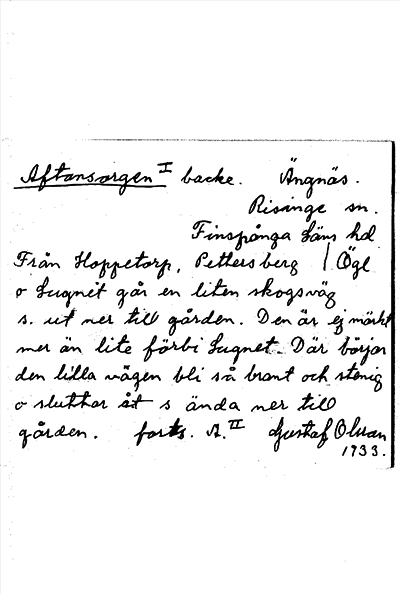 Aftonsorgen I backe. Ängnäs.
Risinge sn.
Finspånga läns hd
Från Hoppetorp, Pettersberg / Ögl
o Lugnet går en liten skogsväg
s. ut ner till gården. Den är ej märkt
mer än lite förbi Lugnet. Där börjar
den lilla vägen bli så brant och stenig
o sluttar åt s ända ner till
gården. forts. A. II Gustaf Olsson
1933.